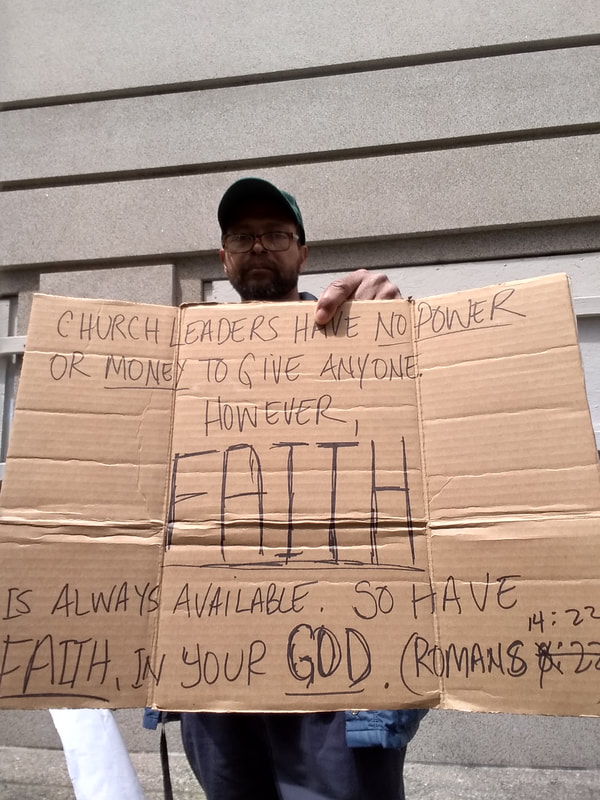 CHURCH LEADERS HAVE NO POWER
OR MONEY TO GIVE ANYONE.
HOWEVER,
FAITH
IS ALWAYS AVAILABLE. SO HAVE
14:22
FAITH, IN YOUR GOD. (ROMANS